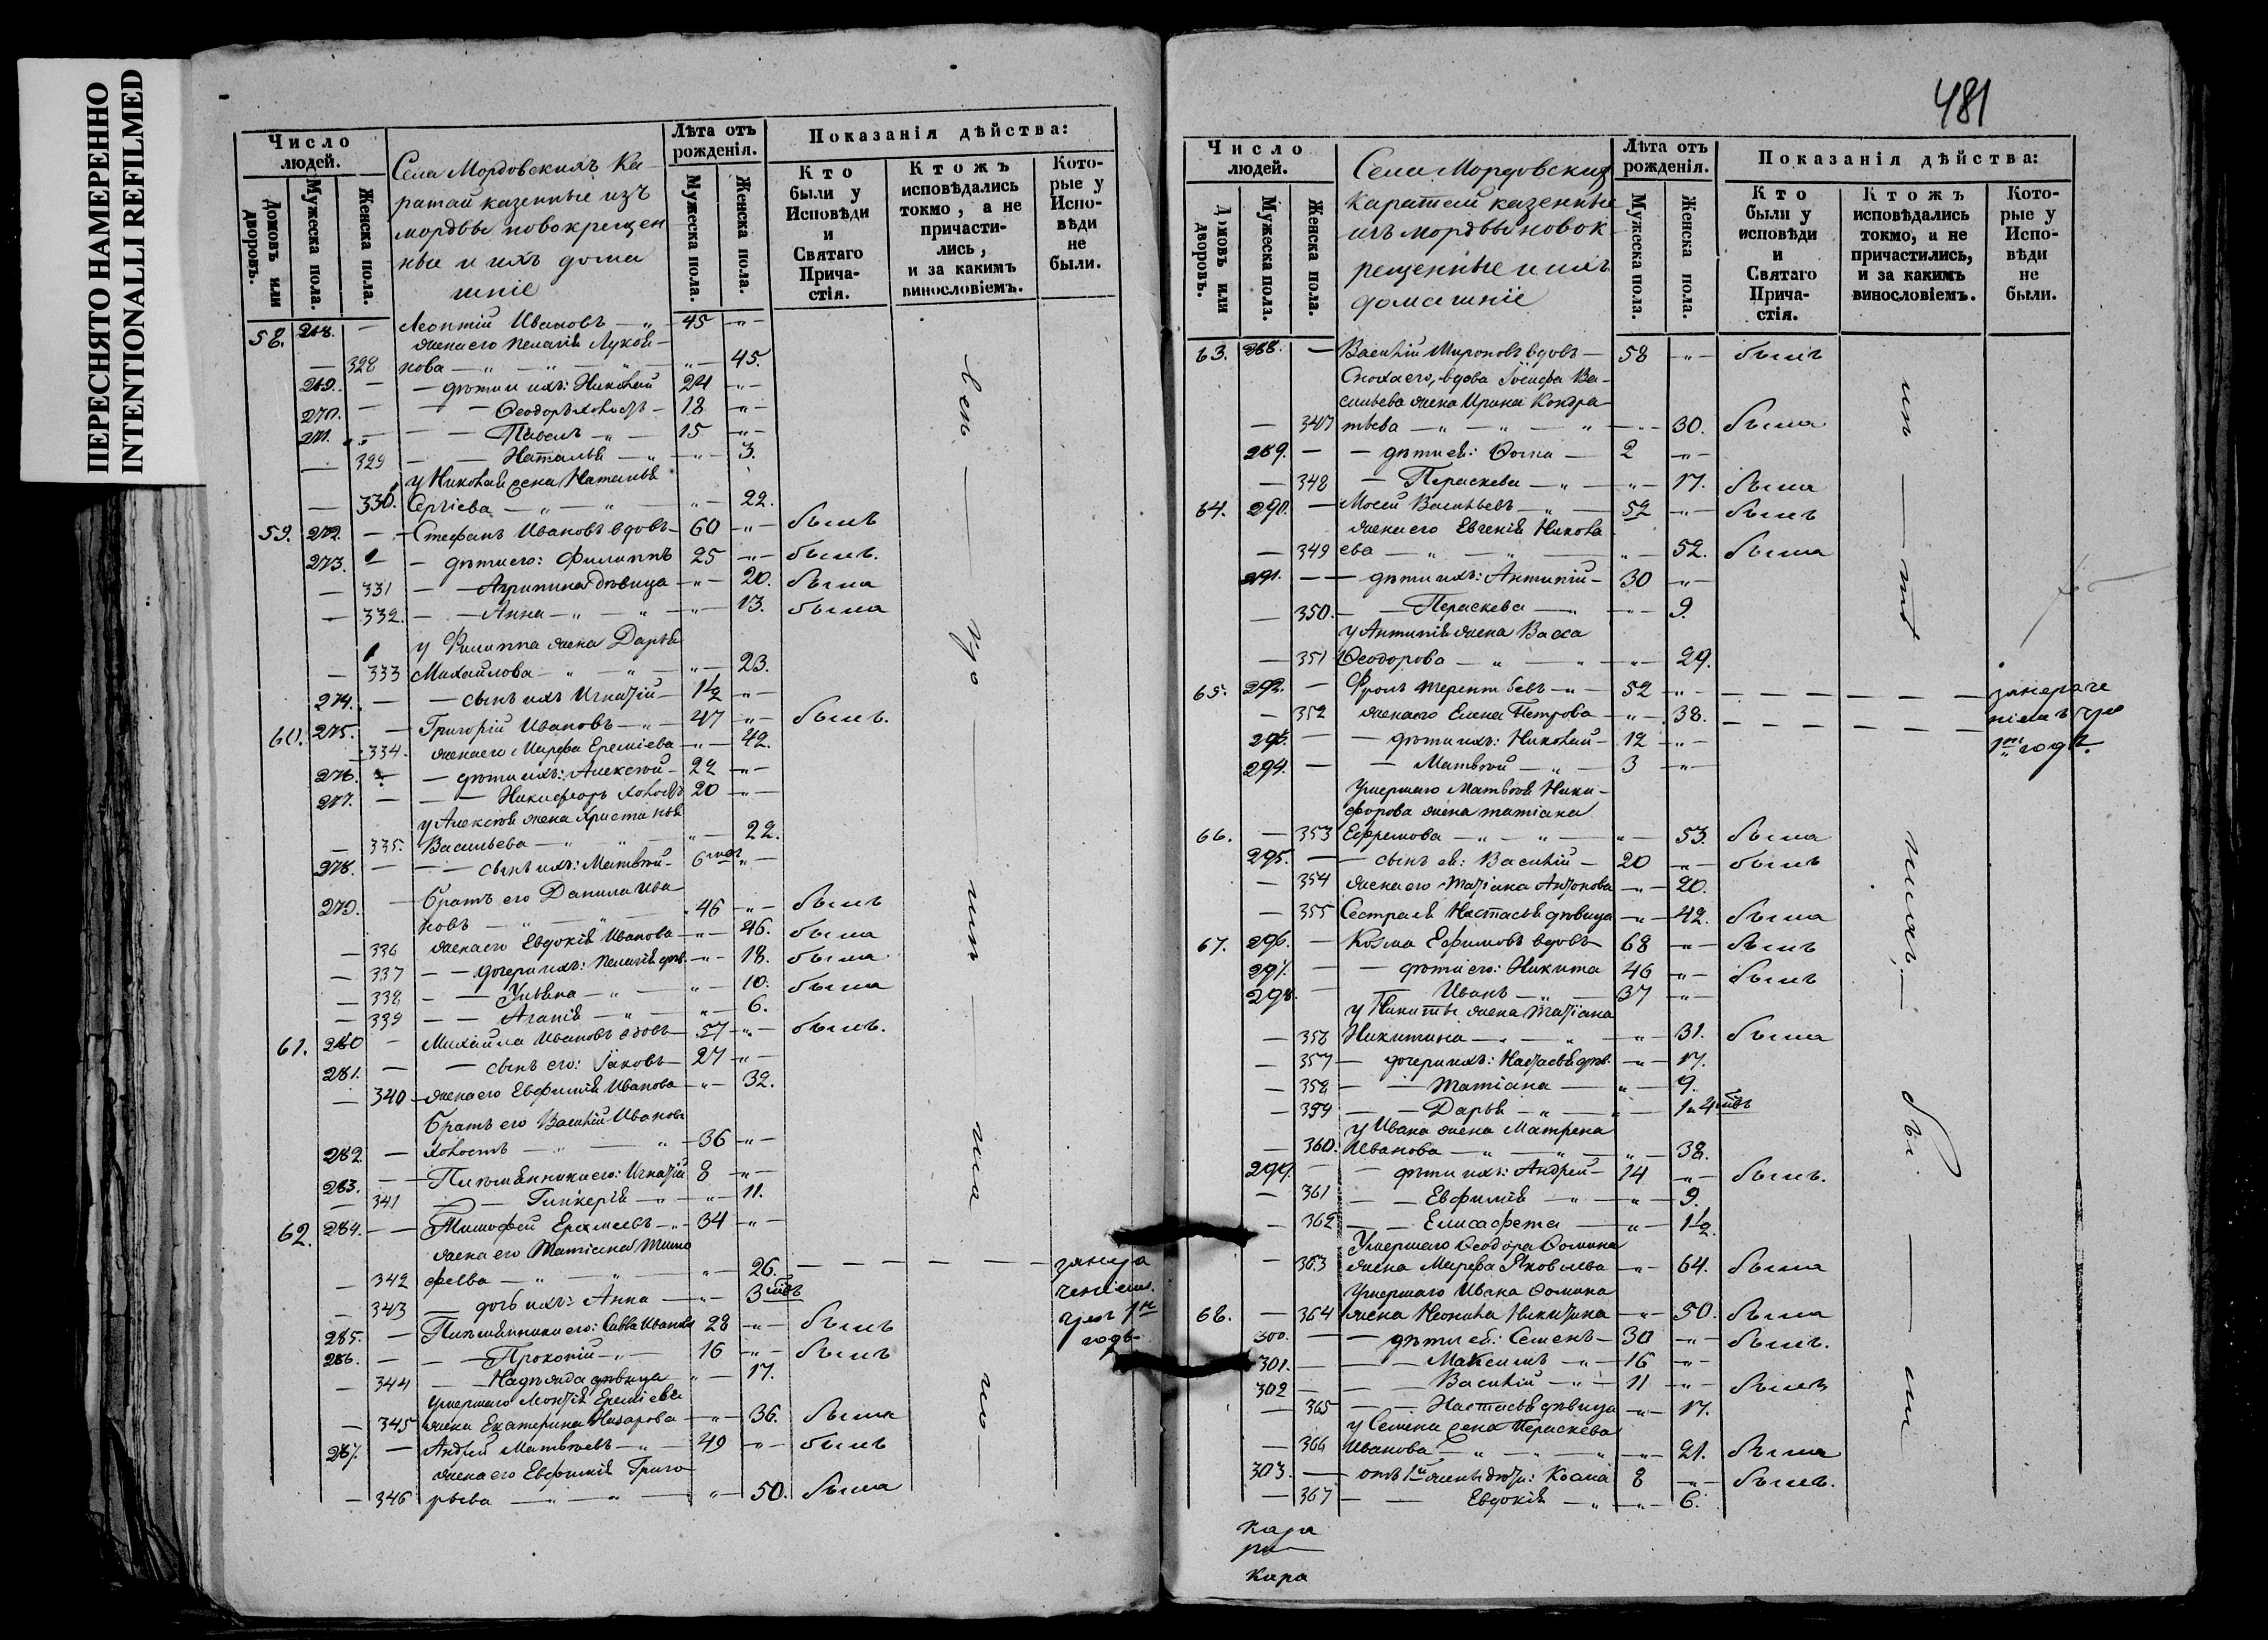 ПЕРЕСНЯТО НАМЕРЕННО
INTENTIONALLI REFILMED
Число людей.
Домовъ или дворовъ.
Мужеска пола.
Женска пола.
Села Мордовскихъ Ка-
ратай казенные изъ
мордвы новокрещен
ные и ихъ дома
шніе
Лѣта отъ рожденія.
Мужеска пола.
Женска пола.
Показанія дѣйства:
Кто были у Исповѣди и Святаго Прича-стія.
Ктожъ исповѣдались токмо, а не причасти-лись, и за какимъ винословіемъ.
Кото-рые у Испо-вѣди не были.
58. 268. — Леонтій Ивановъ — „ — 45 — „ —
жена его Пелагія Лукоя-
— 328 нова — „ — „ — 45.
269. — — дѣти ихъ: Николай 24 — „ —
270. — — Ѳеодоръ холостъ — 18 — „ —
271. — — Павелъ — „ — 15 — „ —
— 329 — — Наталья — „ — 3.
у Николая жена Наталья
— 330. Сергіева — „ — „ — 22.
59. 272. — Стефанъ Ивановъ вдовъ — 60 — „ — былъ
273. — — дѣти его: Филиппъ 25 — „ — былъ.
— 331 — — Агрипина дѣвица — „ — 20. была
— 332. — — Анна — „ — „ — 13. была
у Филиппа жена Дарья
— 333 Михайлова — „ — „ — 23.
274. — — сынъ ихъ Игнатій — 1½ — „ —
60. 275. — Григорій Ивановъ — „ — 47 — „ — былъ.
— 334. жена его Марфа Еремієва — „ — 42.
276. — — дѣти ихъ: Алексѣй — 22 — „ —
277. — — — Никифоръ холостъ 20 — „ —
у Алексѣя жена Христинья
— 335. Васильева — „ — „ — 22.
278. — — сынъ ихъ: Матвѣй — 6 — „ —
Братъ его Данила Ива-
279. — новъ — „ — 46 — „ — былъ
— 336 жена его Евдокія Иванова — „ — 46. была
— 337 — — дочери ихъ: Пелагія дѣв. — „ — 18. была
— 338 — — Ульяна — „ — „ — 10. была
— 339 — — Агапія — „ — „ — 6.
61. 280 — Михайла Ивановъ вдовъ — 57 — „ — былъ.
281. — — сынъ его: Іаковъ — 27 — „ —
— 340 — жена его Евфимія Иванова — „ — 32.
Братъ его Василій Ивановъ
282. — холостъ — „ — 36 — „ —
283. — Племянники его: Игнатій 8 — „ —
— 341 — — Гликерія — „ — „ — 11.
62. 284. — — Тимофей Еремѣевъ — „ — 34 — „ —
жена его Матріона Тимо
— 342 фѣева — „ — „ — 26. — — — — —
— 343 — дочь ихъ: Анна — „ — 3
285. — Племянники его: Савва Ивановъ 28 — „ — былъ
286. — — Прокопій — „ — 16 — „ — былъ
— 344 — — Надежда дѣвица — „ — 17.
умершаго Еремієва
— 345 жена Екатерина Назарова — „ — 36. была
287. — Андрей Матвѣевъ — „ — 49 — „ — былъ
жена его Евфимія Григо
— 346 рьева — „ — „ — 50. была
481
Число людей.
Домовъ или дворовъ.
Мужеска пола.
Женска пола.
Села Мордовскихъ
Каратай казенные
изъ мордвы новок
рещенные и ихъ
домашніе
Лѣта отъ рожденія.
Мужеска пола.
Женска пола.
Показанія дѣйства:
Кто были у исповѣди и Святаго Прича-стія.
Ктожъ исповѣдались токмо, а не причастились, и за какимъ винословіемъ.
Кото-рые у Испо-вѣди не были.
63. 288. — Василій Мироновъ вдовъ — 58 — „ — былъ
Сноха его, вдова Іосифа Ва-
сильева жена Ирина Кондра-
— 347 тьева — „ — „ — „ — 30. была
289. — — дѣти ея: Ѳома — 2 — „ —
— 348 — Пераскева — „ — „ — 17. была
64. 290. — Мосей Васильевъ — „ — 52 — „ — былъ
жена его Евгенія Никола
— 349 ева — „ — „ — „ — 52. была
291. — — дѣти ихъ: Антипій — 30 — „ —
— 350. — — Пераскева — „ — 9.
у Антипія жена Васса
— 351 Ѳеодорова — „ — „ — 29.
65. 292. — Фролъ Терентьевъ — „ — 52 — „ — — — — — —
— 352 жена его Елена Петрова — „ — 38. — — — — —
293. — — дѣти ихъ: Николай — 12 — „ —
294. — — Матвѣй — „ — 3 — „ —
Умершаго Матвѣя Ники-
форова жена татіана
66. — 353 Ефремова — „ — „ — 53. была
295. — — сынъ ея: Василій — 20 — „ — былъ
— 354 жена его Татіана Антонова — „ — 20.
— 355 Сестра ея Настасья дѣвица — „ — 42. была
67. 296. — Козма Ефимовъ вдовъ — 68 — „ — былъ
297. — — дѣти его: Никита 46 — „ — былъ
298. — — Иванъ — „ — 37 — „ —
у Никиты жена Татіана
— 358 Никитина — „ — „ — 31. была
— 357 — дочери ихъ: Настасья дѣв. — „ — 17.
— 358 — — Татіана — „ — 9.
— 359 — — Дарья — „ — „ — 1
у Ивана жена Матрена
— 360. Иванова — „ — „ — 38.
299. — — дѣти ихъ: Андрей — 14 — „ — былъ.
— 361 — — Евфимія — „ — „ — 9.
— 362 — — Елисафета — „ — 1½.
Умершаго Ѳеодора Ѳомина
— 363 жена Марфа Яковлева — „ — 64. была
Умершаго Ивана Ѳомина
68. — 364 жена Неонила Никитина — „ — 50. была
300. — — дѣти ея: Семенъ — 30 — „ — былъ.
301. — — Максимъ — „ — 16 — „ —
302 — — Василій — „ — 11 — „ — былъ
— 365 — — Настасья дѣвица — „ — 17.
у Семена жена Пераскева
— 366 Иванова — „ — „ — 21. была
303. — отъ 1й жены дѣти: Козма 8 — „ — былъ.
— 367 — — Евдокія — „ — „ — 6.
кара
ра
кара